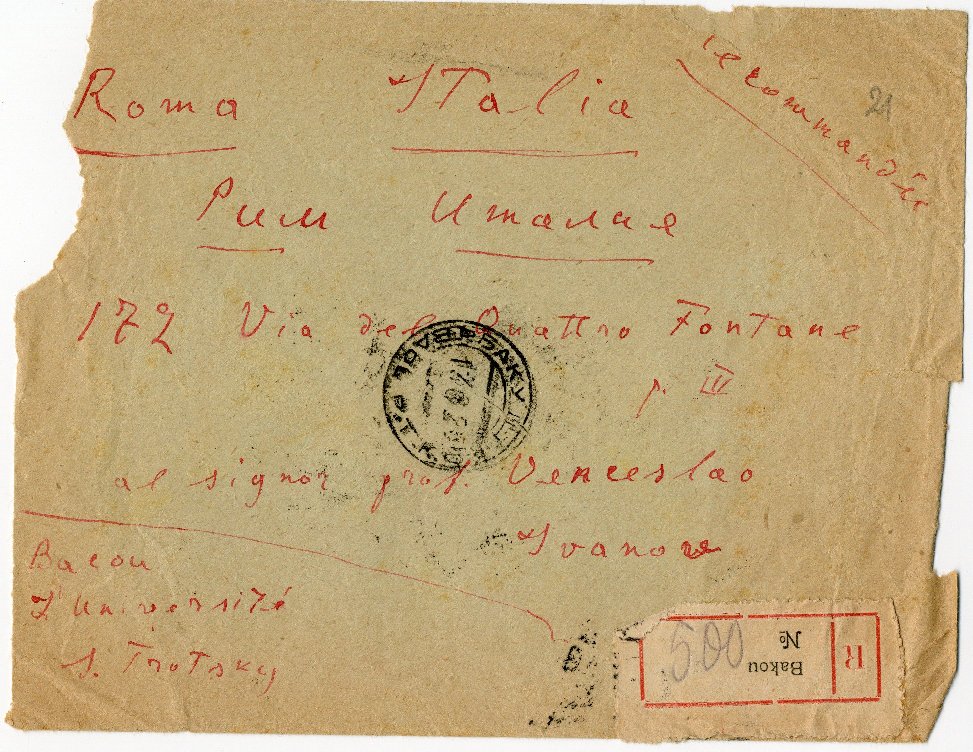 recommandée
21
Roma Italia
Рим Италия
172 Via del Quattro Fontane
p. IV
БАКУ
al signor prof. Venceslao
Ivanow
Bacou
L'Université
S. Trotsky
R
Bakou
№
500